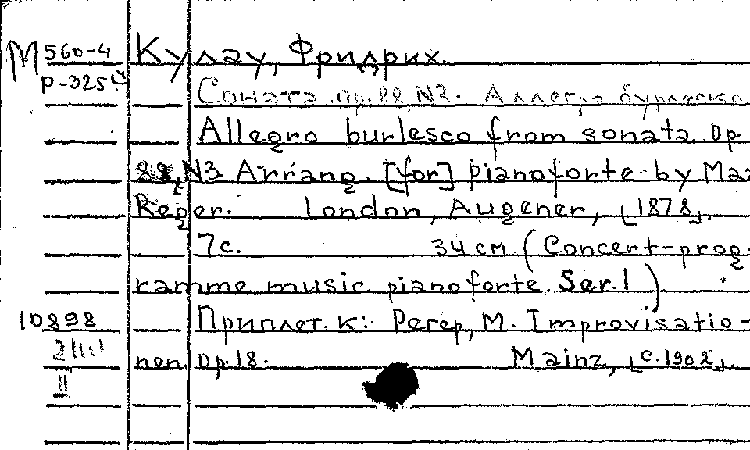 М 560-4 Кулау, Фридрих.
Р-325
Соната ор.88 №3. Аллегро бурлеско
Allegro burlesco from sonata op
88, N3 Arrang. [for] pianoforte by Max
Reger. London, Augener, [1878].
7с. 34 см (Concert-prog-
ramme music pianoforte. Ser. 1)
10898 Приплет. к: Регер, М. Improvisatio-
nen op.18. Mainz, [с.1902].
II